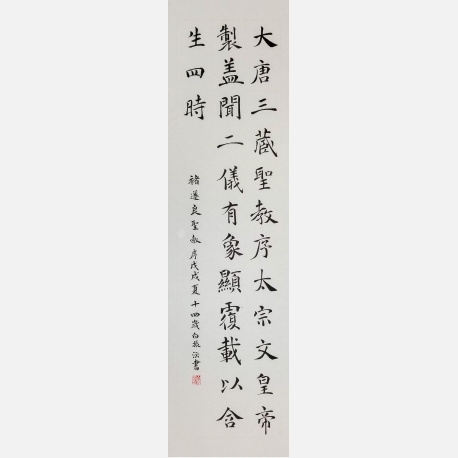 大唐三藏聖教序太宗文皇帝
製盖聞二儀有象顯覆載以含
生四時
褚遂良聖教序戊戌夏十四歲白振法書